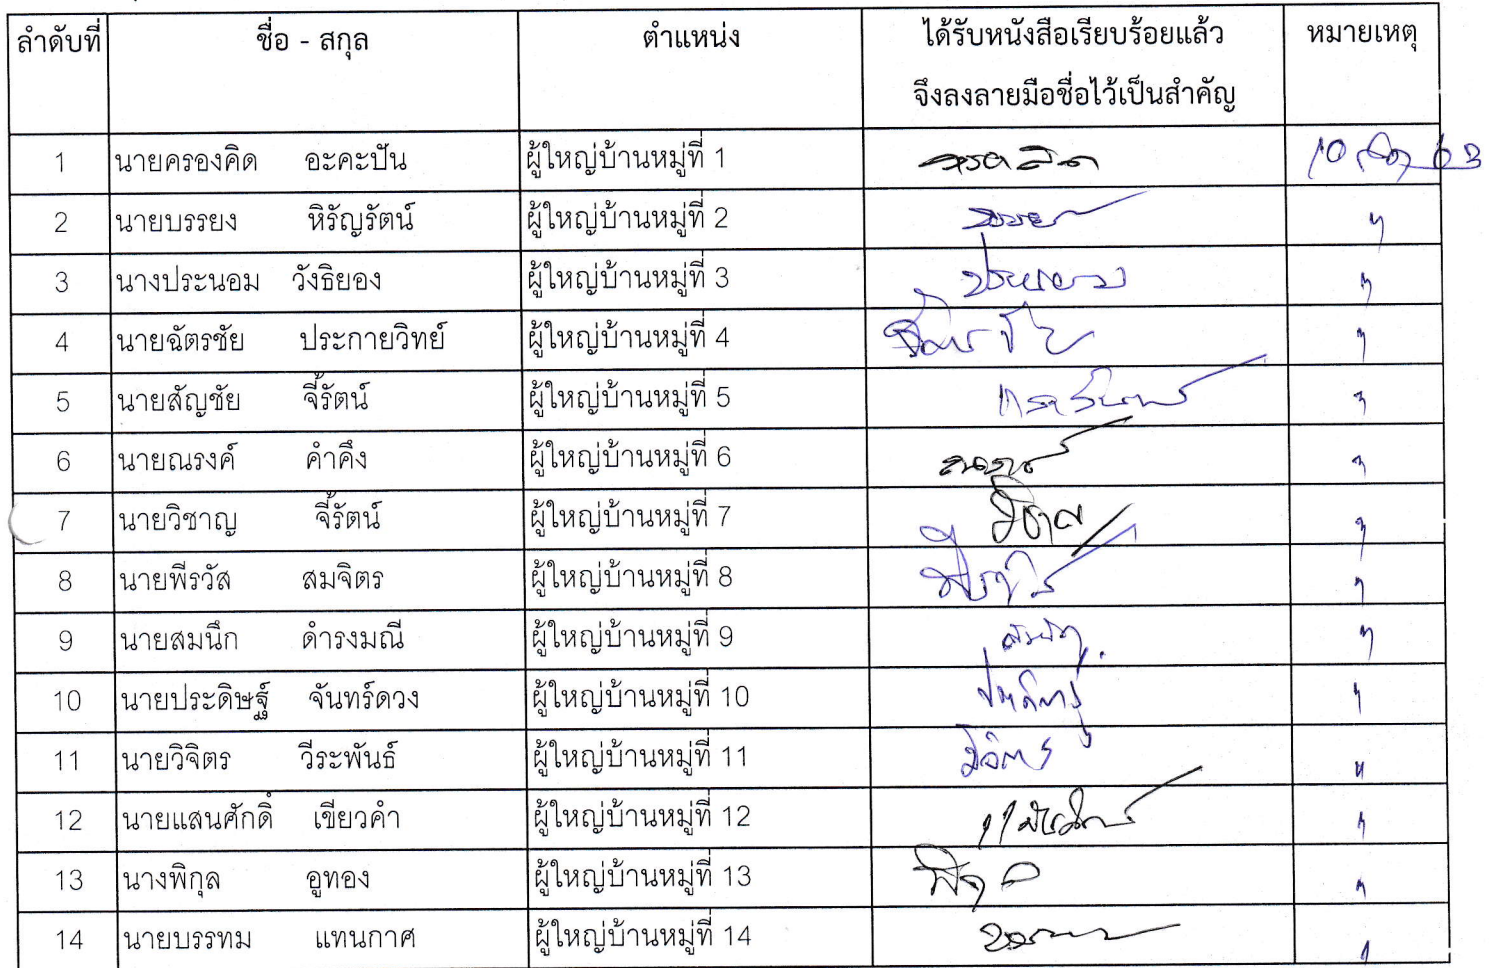 ลำดับที่ ชื่อ - สกุล ตำแหน่ง ได้รับหนังสือเรียบร้อยแล้ว หมายเหตุ
จึงลงลายมือชื่อไว้เป็นสำคัญ
1 นายครองคิด อะคะปัน ผู้ใหญ่บ้านหมู่ที่ 1 10 63
2 นายบรรยง หิรัญรัตน์ ผู้ใหญ่บ้านหมู่ที่ 2
3 นางประนอม วังธิยอง ผู้ใหญ่บ้านหมู่ที่ 3
4 นายฉัตรชัย ประกายวิทย์ ผู้ใหญ่บ้านหมู่ที่ 4
5 นายสัญชัย จี้รัตน์ ผู้ใหญ่บ้านหมู่ที่ 5
6 นายณรงค์ คำคึง ผู้ใหญ่บ้านหมู่ที่ 6
7 นายวิชาญ จี้รัตน์ ผู้ใหญ่บ้านหมู่ที่ 7 วิชาญ
8 นายพีรวัส สมจิตร ผู้ใหญ่บ้านหมู่ที่ 8
9 นายสมนึก ดำรงมณี ผู้ใหญ่บ้านหมู่ที่ 9
10 นายประดิษฐ์ จันทร์ดวง ผู้ใหญ่บ้านหมู่ที่ 10
11 นายวิจิตร วีระพันธ์ ผู้ใหญ่บ้านหมู่ที่ 11 วิจิตร
12 นายแสนศักดิ์ เขียวคำ ผู้ใหญ่บ้านหมู่ที่ 12
13 นางพิกุล อูทอง ผู้ใหญ่บ้านหมู่ที่ 13
14 นายบรรทม แทนกาศ ผู้ใหญ่บ้านหมู่ที่ 14